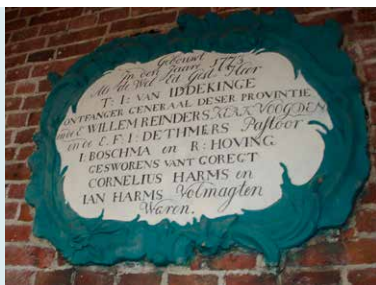 Gebouwt
In den Jaare 1773
Als de Wel Ed Gest Heer
T: I: VAN IDDEKINGE
ONTFANGER GENERAAL DESER PROVINTIE
WILLEM REINDERS KERKVOOGDEN
en de E. F: I: DETHMERS Pastoor
I: BOSCHMA en R: HOVING
GESWORENS VANT GOREGT
CORNELIUS HARMS en
IAN HARMS Volmagten
Waren.